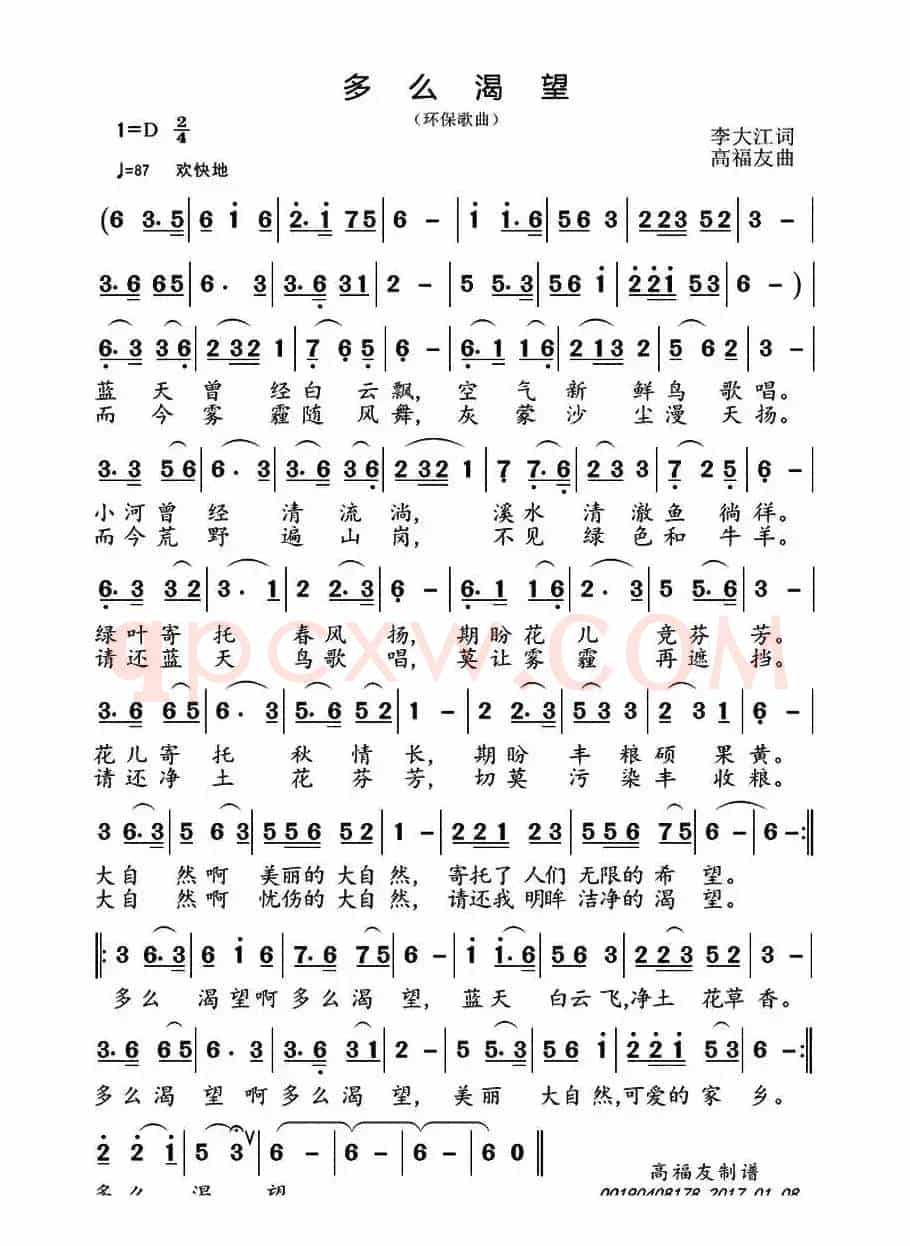 多么渴望
（环保歌曲）
1=D 2/4
李大江词
高福友曲
♩=87 欢快地
(6 3. 5 | 6 i 6 | 2. i 7 5 | 6 - | i i. 6 | 5 6 3 | 2 2 3 5 2 | 3 - |
3. 6 6 5 | 6. 3 | 3. 6 3 1 | 2 - | 5 5. 3 | 5 6 i | 2 2 i 5 3 | 6 - )
6. 3 3 6 | 2 3 2 1 | 7 6 5 | 6 - | 6. 1 1 6 | 2 1 3 2 | 5 6 2 | 3 - |
蓝天曾经白云飘，空气新鲜鸟歌唱。
而今雾霾随风舞，灰蒙沙尘漫天扬。
3. 3 5 6 | 6. 3 | 3. 6 3 6 | 2 3 2 1 | 7 7. 6 | 2 3 3 | 7 2 5 | 6 - |
小河曾经清流淌，溪水清澈鱼徜徉。
而今荒野遍山岗，不见绿色和牛羊。
6. 3 3 2 | 3. 1 | 2 2. 3 | 6 - | 6. 1 1 6 | 2. 3 | 5 5. 6 | 3 - |
绿叶寄托春风扬，期盼花儿竞芬芳。
请还蓝天鸟歌唱，莫让雾霾再遮挡。
3. 6 6 5 | 6. 3 | 5. 6 5 2 | 1 - | 2 2. 3 | 5 3 3 | 2 3 1 | 6 - |
花儿寄托秋情长，期盼丰粮硕果黄。
请还净土花芬芳，切莫污染丰收粮。
3 6. 3 | 5 6 3 | 5 5 6 5 2 | 1 - | 2 2 1 2 3 | 5 5 6 7 5 | 6 - | 6 - :||
大自然啊美丽的大自然，寄托了人们无限的希望。
大自然啊忧伤的大自然，请还我明眸洁净的渴望。
||: 3 6. 3 | 6 i 6 | 7. 6 7 5 | 6 - | i i. 6 | 5 6 3 | 2 2 3 5 2 | 3 - |
多么渴望啊多么渴望，蓝天白云飞，净土花草香。
3. 6 6 5 | 6. 3 | 3. 6 3 1 | 2 - | 5 5. 3 | 5 6 i | 2 2 i 5 3 | 6 - :||
多么渴望啊多么渴望，美丽大自然，可爱的家乡。
2 2 i | 5 3 ∨ | 6 - | 6 - | 6 - | 6 0 ||
多么渴望
高福友制谱
00190408178 2017 01 08
qpcxw.COM